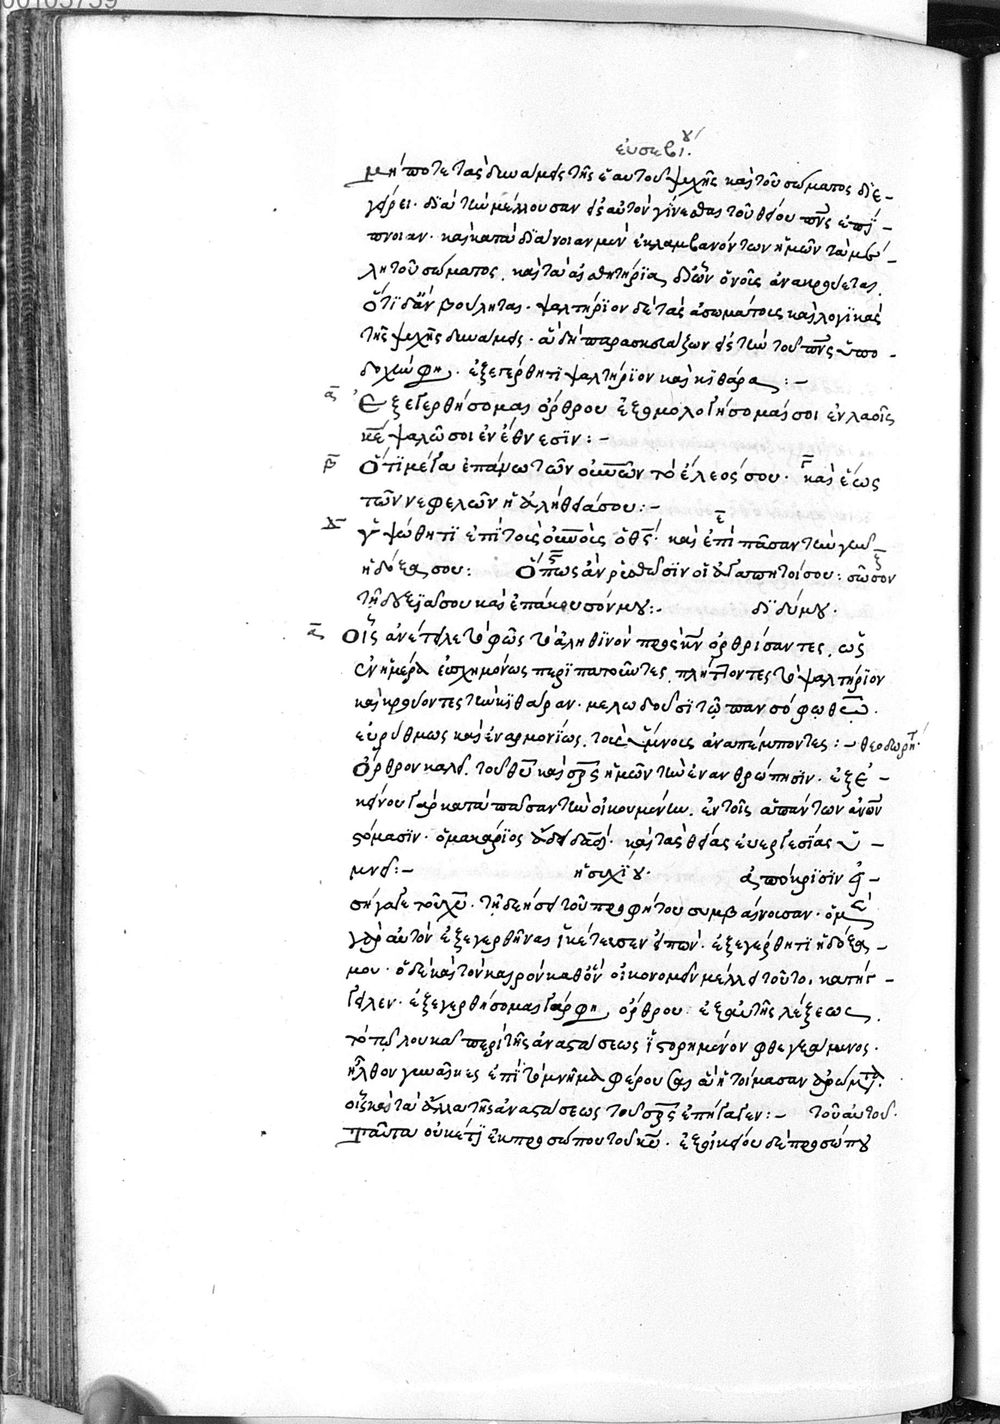 00105759
εὐσεβίου
μήποτε τὰς δυνάμεις τῆς ἑαυτοῦ ψυχῆς καὶ τοῦ σώματος διε-
γείρει· διὰ τὴν μέλλουσαν εἰς αὐτὸν γίνεσθαι τοῦ θείου πνς ἐπί-
πνοιαν· καὶ κατὰ διάνοιαν μὲν ἐκλαμβανόντων ἡμῶν τὰ μέ-
λη τοῦ σώματος, καὶ τὰ αἰσθητήρια, δι' ὧν ὁ νοῦς ἀνακρούεται
ὅτι δ' ἂν βούληται· ψαλτήριον δὲ τὰς ἀσωμάτους καὶ λογικὰς
τῆς ψυχῆς δυνάμεις· ἃ δὴ παρασκευάζων εἰς τὴν τοῦ πνς ὑπο-
δοχὴν φη· ἐξεγέρθητι ψαλτήριον καὶ κιθάρα :-
α Ἐξεγερθήσομαι ὄρθρου ἐξομολογήσομαί σοι ἐν λαοῖς
κε ψαλῶ σοι ἐν ἔθνεσιν :-
β Ὅτι μέγα ἐπάνω τῶν οὐνῶν τὸ ἔλεός σου· γ καὶ ἕως
τῶν νεφελῶν ἡ ἀλήθειά σου :-
δ ὑψώθητι ἐπὶ τοὺς οὐνοὺς ὁ θς· ε καὶ ἐπὶ πᾶσαν τὴν γῆν
ἡ δόξα σου : ς Ὅπως ἂν ῥυσθῶσιν οἱ ἀγαπητοί σου : ζ σῶσον
τῇ δεξιᾷ σου καὶ ἐπάκουσόν μου :- διδύμου·
α Οἷς ἀνέτειλε τὸ φῶς τὸ ἀληθινὸν πρὸς κν ὀρθρίσαντες, ὡς
ἐν ἡμέρα εὐσχημόνως περιπατοῦντες, πλήττοντες τὸ ψαλτήριον
καὶ κρούοντες τὴν κιθάραν· μελωδοῦσι τῷ πανσόφω θεῷ·
εὐρύθμως καὶ ἐναρμονίως, τοὺς ὕμνους ἀναπέμποντες :- θεοδωρήτ
Ὄρθρον καλεῖ, τοῦ θυ καὶ σρς ἡμῶν τὴν ἐνανθρώπησιν· ἐξ ἐ-
κείνου γὰρ κατὰ πᾶσαν τὴν οἰκουμένην, ἐν τοῖς ἁπάντων ἀνῶν
στόμασιν· ὁ μακάριος ἄδει δαδ· καὶ τὰς θείας εὐεργεσίας ὑ-
μνεῖ :- ἡσυχίου· ἀπόκρισιν εἰ-
σήγαγε τοῦ χυ· τῇ δεήσει τοῦ προφήτου συμβαίνουσαν· ὁ μὲν
γὰρ αὐτὸν ἐξεγερθῆναι ἱκέτευσεν εἰπών· ἐξεγέρθητι ἡ δόξα
μου· ὁ δὲ καὶ τὸν καιρὸν καθ' ὃν οἰκονομεῖν μέλλει τοῦτο, κατήγ-
γειλεν· ἐξεγερθήσομαι γάρ φη, ὄρθρου·
τὸ τοῦ λουκᾶ περὶ τῆς ἀναστάσεως ἱστορημένον φθεγξάμενος·
ἦλθον γυναῖκες ἐπὶ τὸ μνῆμα φέρουσαι ἃ ἡτοίμασαν ἀρώματα·
οἷς καὶ τὰ ἄλλα τῆς ἀναστάσεως τοῦ σρς ἐπήγαγεν :- τοῦ αὐτοῦ·
ταῦτα οὐκέτι ἐκ προσώπου τοῦ κυ· ἐξ οἰκείου δὲ προσώπου